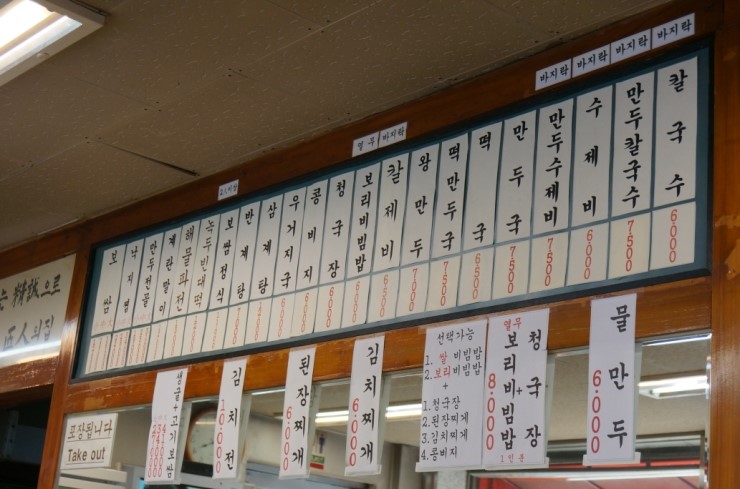 바지락
바지락
바지락
바지락
열무
바지락
보쌈
낙지볶
만두전골
계란말이
해물파전
녹두빈대떡
보쌈정식
반계탕
삼계탕
우거지국 6000
콩비지 6000
청국장 6000
보리비빔밥 6000
칼제비 6500
왕만두 7000
떡만두국 7500
떡국 6500
만두국 7500
만두수제비 7500
수제비 6000
만두칼국수 7500
칼국수 6.000
精誠으로
포장됩니다
Take out
생굴+고기보쌈
김치전 10.000
된장찌개 6.000
김치찌개 6.000
선택가능
1. 쌀 비빔밥
2. 보리비빔밥
+
1. 청국장
2. 된장찌게
3. 김치찌게
4. 콩비지
열무
보리비빔밥 + 청국장
8.000
1인분
물만두 6.000